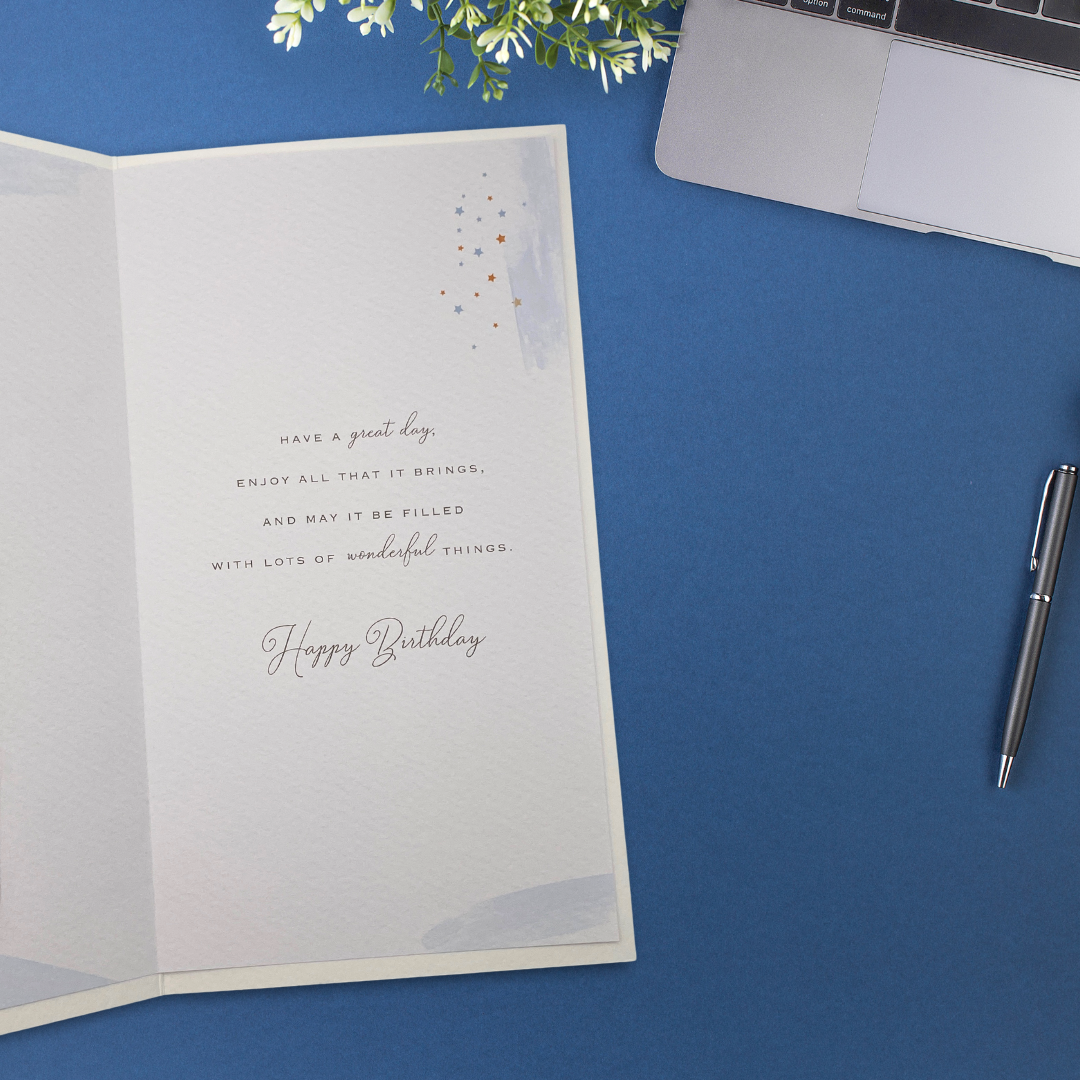 option
command
HAVE A great day,
ENJOY ALL THAT IT BRINGS,
AND MAY IT BE FILLED
WITH LOTS OF wonderful THINGS.
Happy Birthday